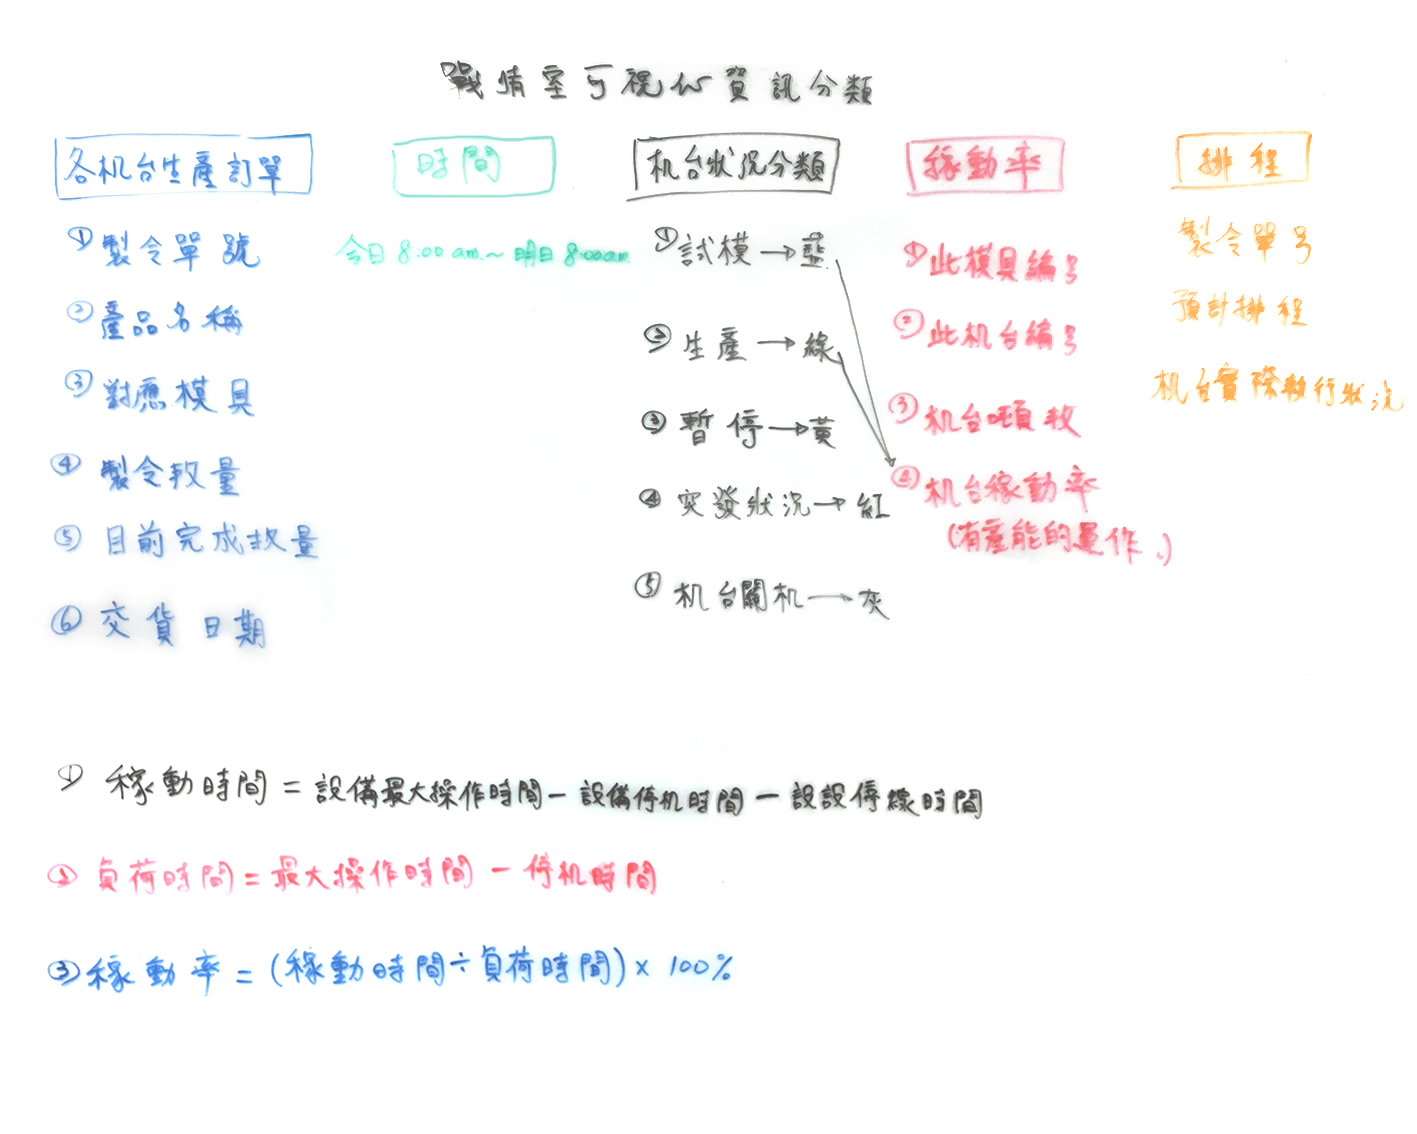 戰情室可視化資訊分類
各机台生產訂單
①製令單號
②產品名稱
③對應模具
④製令数量
⑤目前完成数量
⑥交貨日期
時間
今日 8:00 am.~明日 8:00am.
机台狀況分類
①試模→藍
②生產→線
③暫停→黃
④突發狀況→紅
⑤机台關机→灰
稼動率
①此模具編号
②此机台編号
③机台噸数
④机台稼動率
(有產能的運作.)
排程
製令單号
預計排程
机台實際執行狀況
①稼動時間=設備最大操作時間-設備停机時間-設設停線時間
②負荷時間=最大操作時間-停机時間
③稼動率=(稼動時間÷負荷時間)×100%